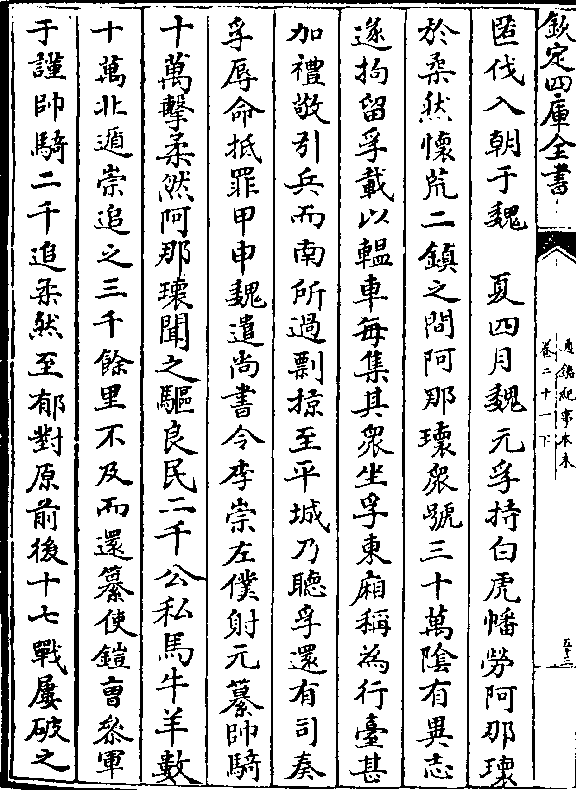 欽定四庫全書
通鑑紀事本末
卷二十一下
五十三
匿伐入朝于魏　夏四月魏元孚持白虎幡勞阿那瓌
於柔然懷荒二鎮之間阿那瓌衆號三十萬隂有異志
遂拘留孚載以轀車每集其衆坐孚東廂稱為行臺甚
加禮敬引兵而南所過剽掠至平城乃聽孚還有司奏
孚辱命抵罪甲申魏遣尚書令李崇左僕射元纂帥騎
十萬擊柔然阿那瓌聞之驅良民二千公私馬牛羊數
十萬北遁崇追之三千餘里不及而還纂使鎧曹參軍
于謹帥騎二千追柔然至郁對原前後十七戰屢破之